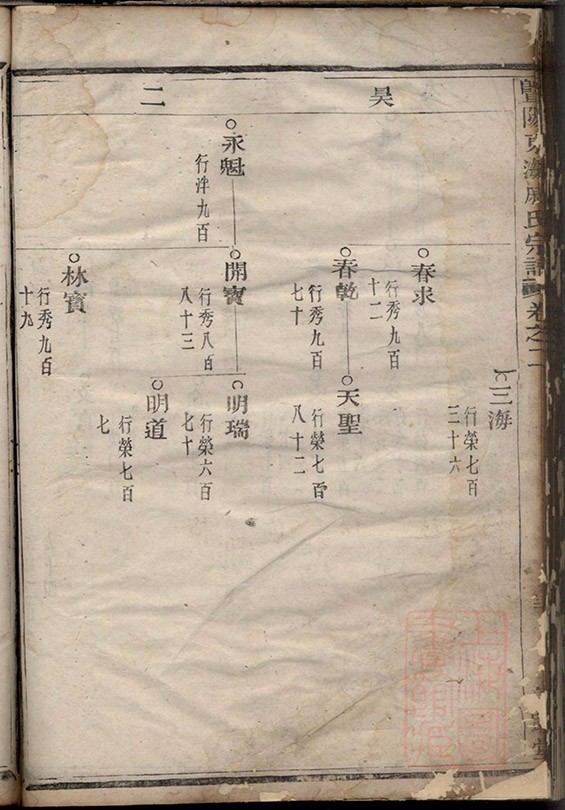 暨陽東海
氏宗譜
卷之二
昊
二
三海
行榮七百
三十六
春求
行秀九百
十二
春乾
行秀九百
七十
天聖
行榮七百
八十二
永魁
行泮九百
開寶
行秀八百
八十三
明瑞
行榮六百
七十
明道
行榮七百
七
林寶
行秀九百
十九